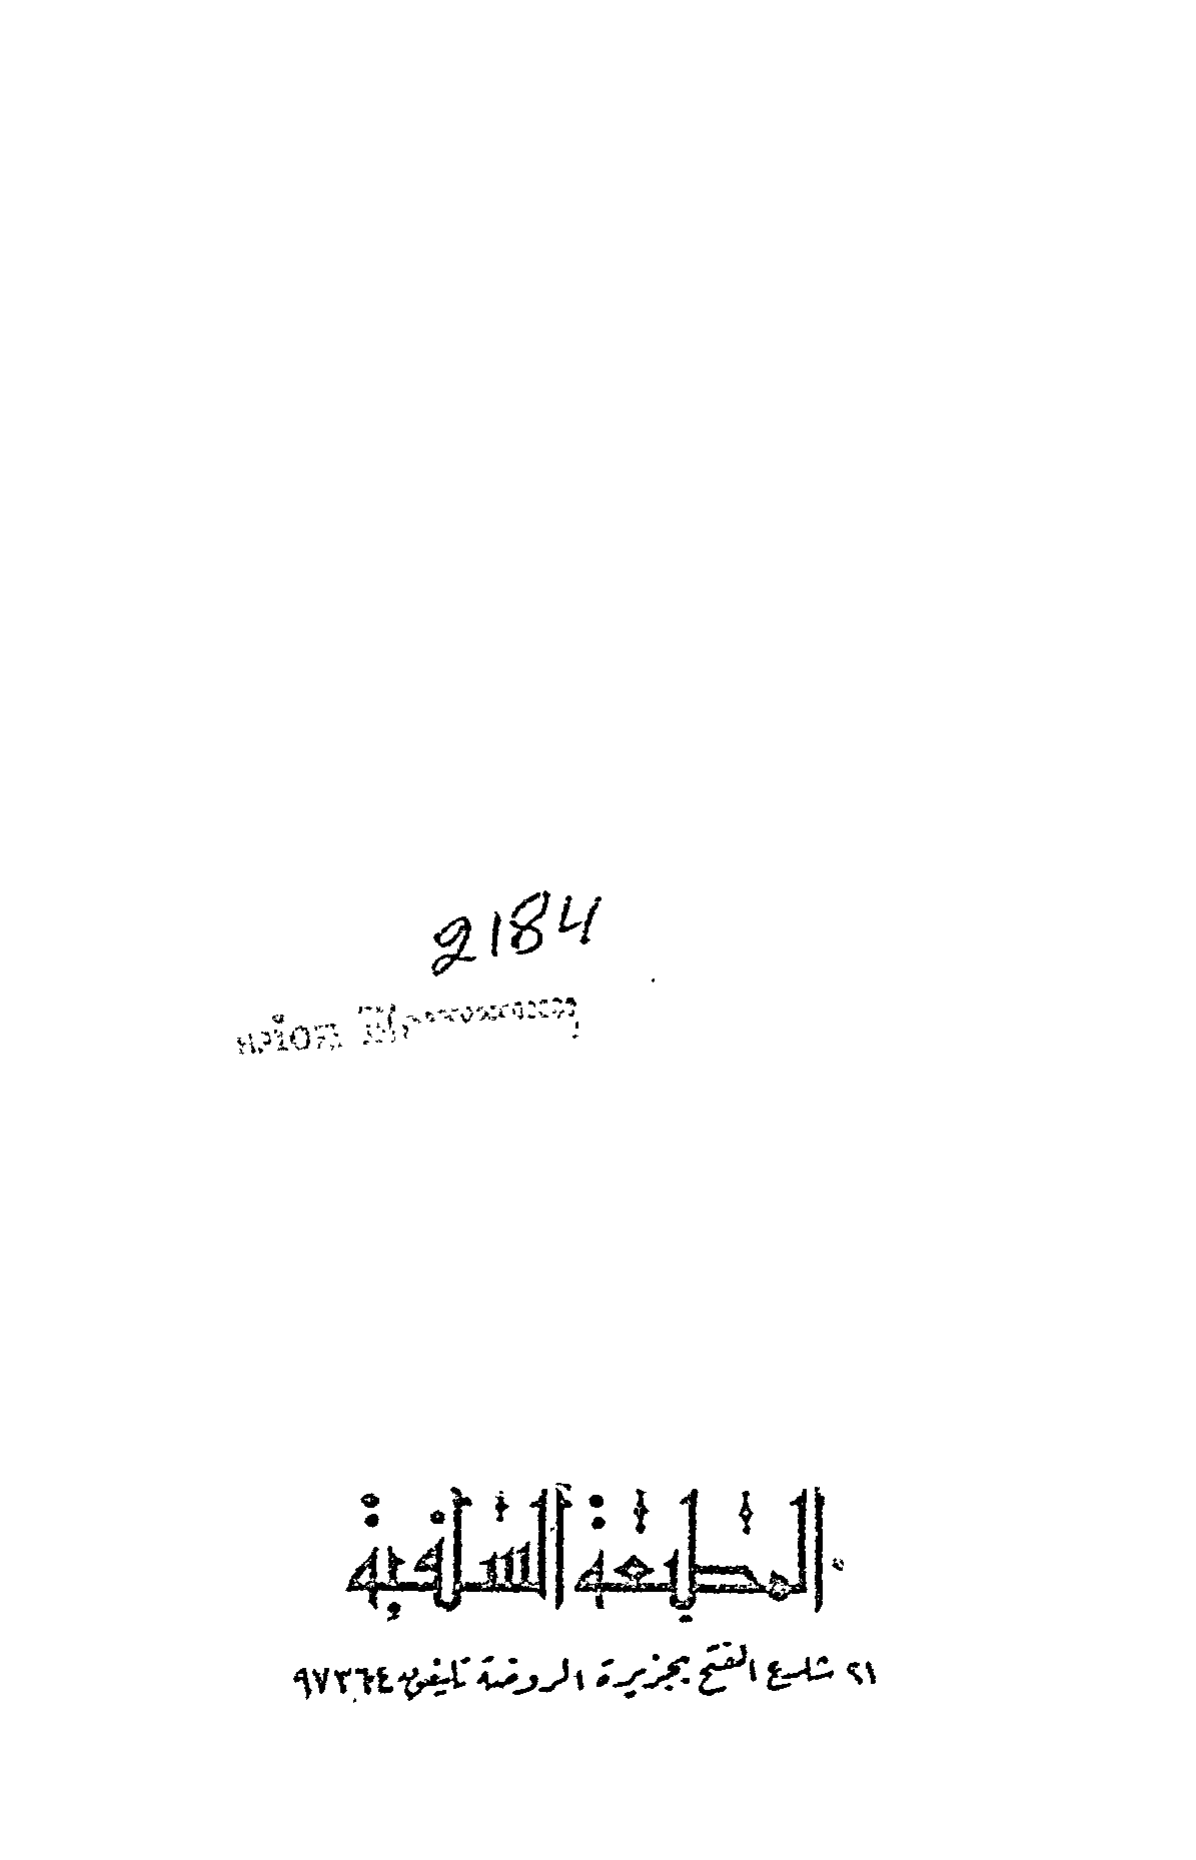 2184
المطبعة السلفية
٢١ شارع الفتح بجزيرة الروضة تليفون ٩٧٣٦٤